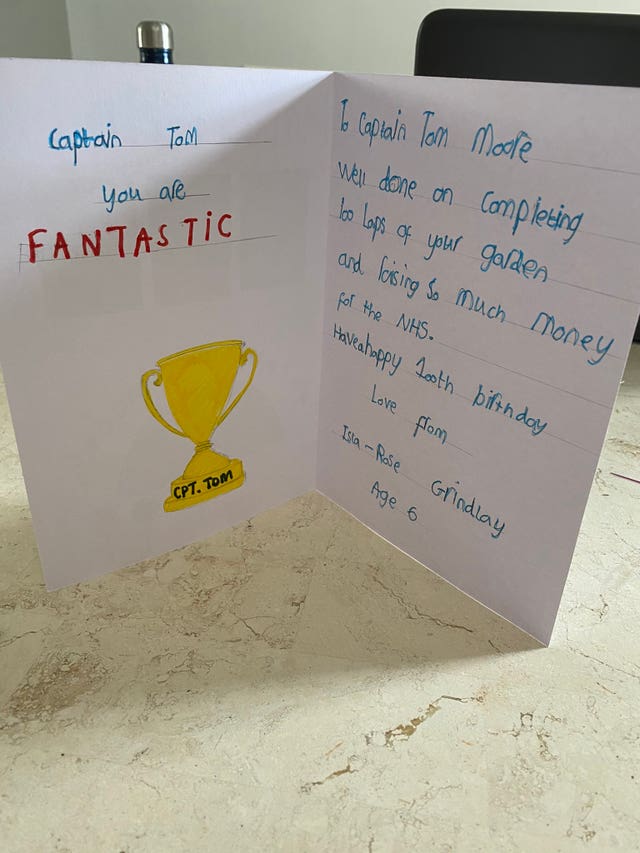 Captain Tom
you are
FANTASTIC
CPT. TOM
To Captain Tom Moore
Well done on completing
100 laps of your garden
and raising so much money
for the NHS.
Have a happy 100th birthday
Love from
Isla-Rose Grindlay
Age 6